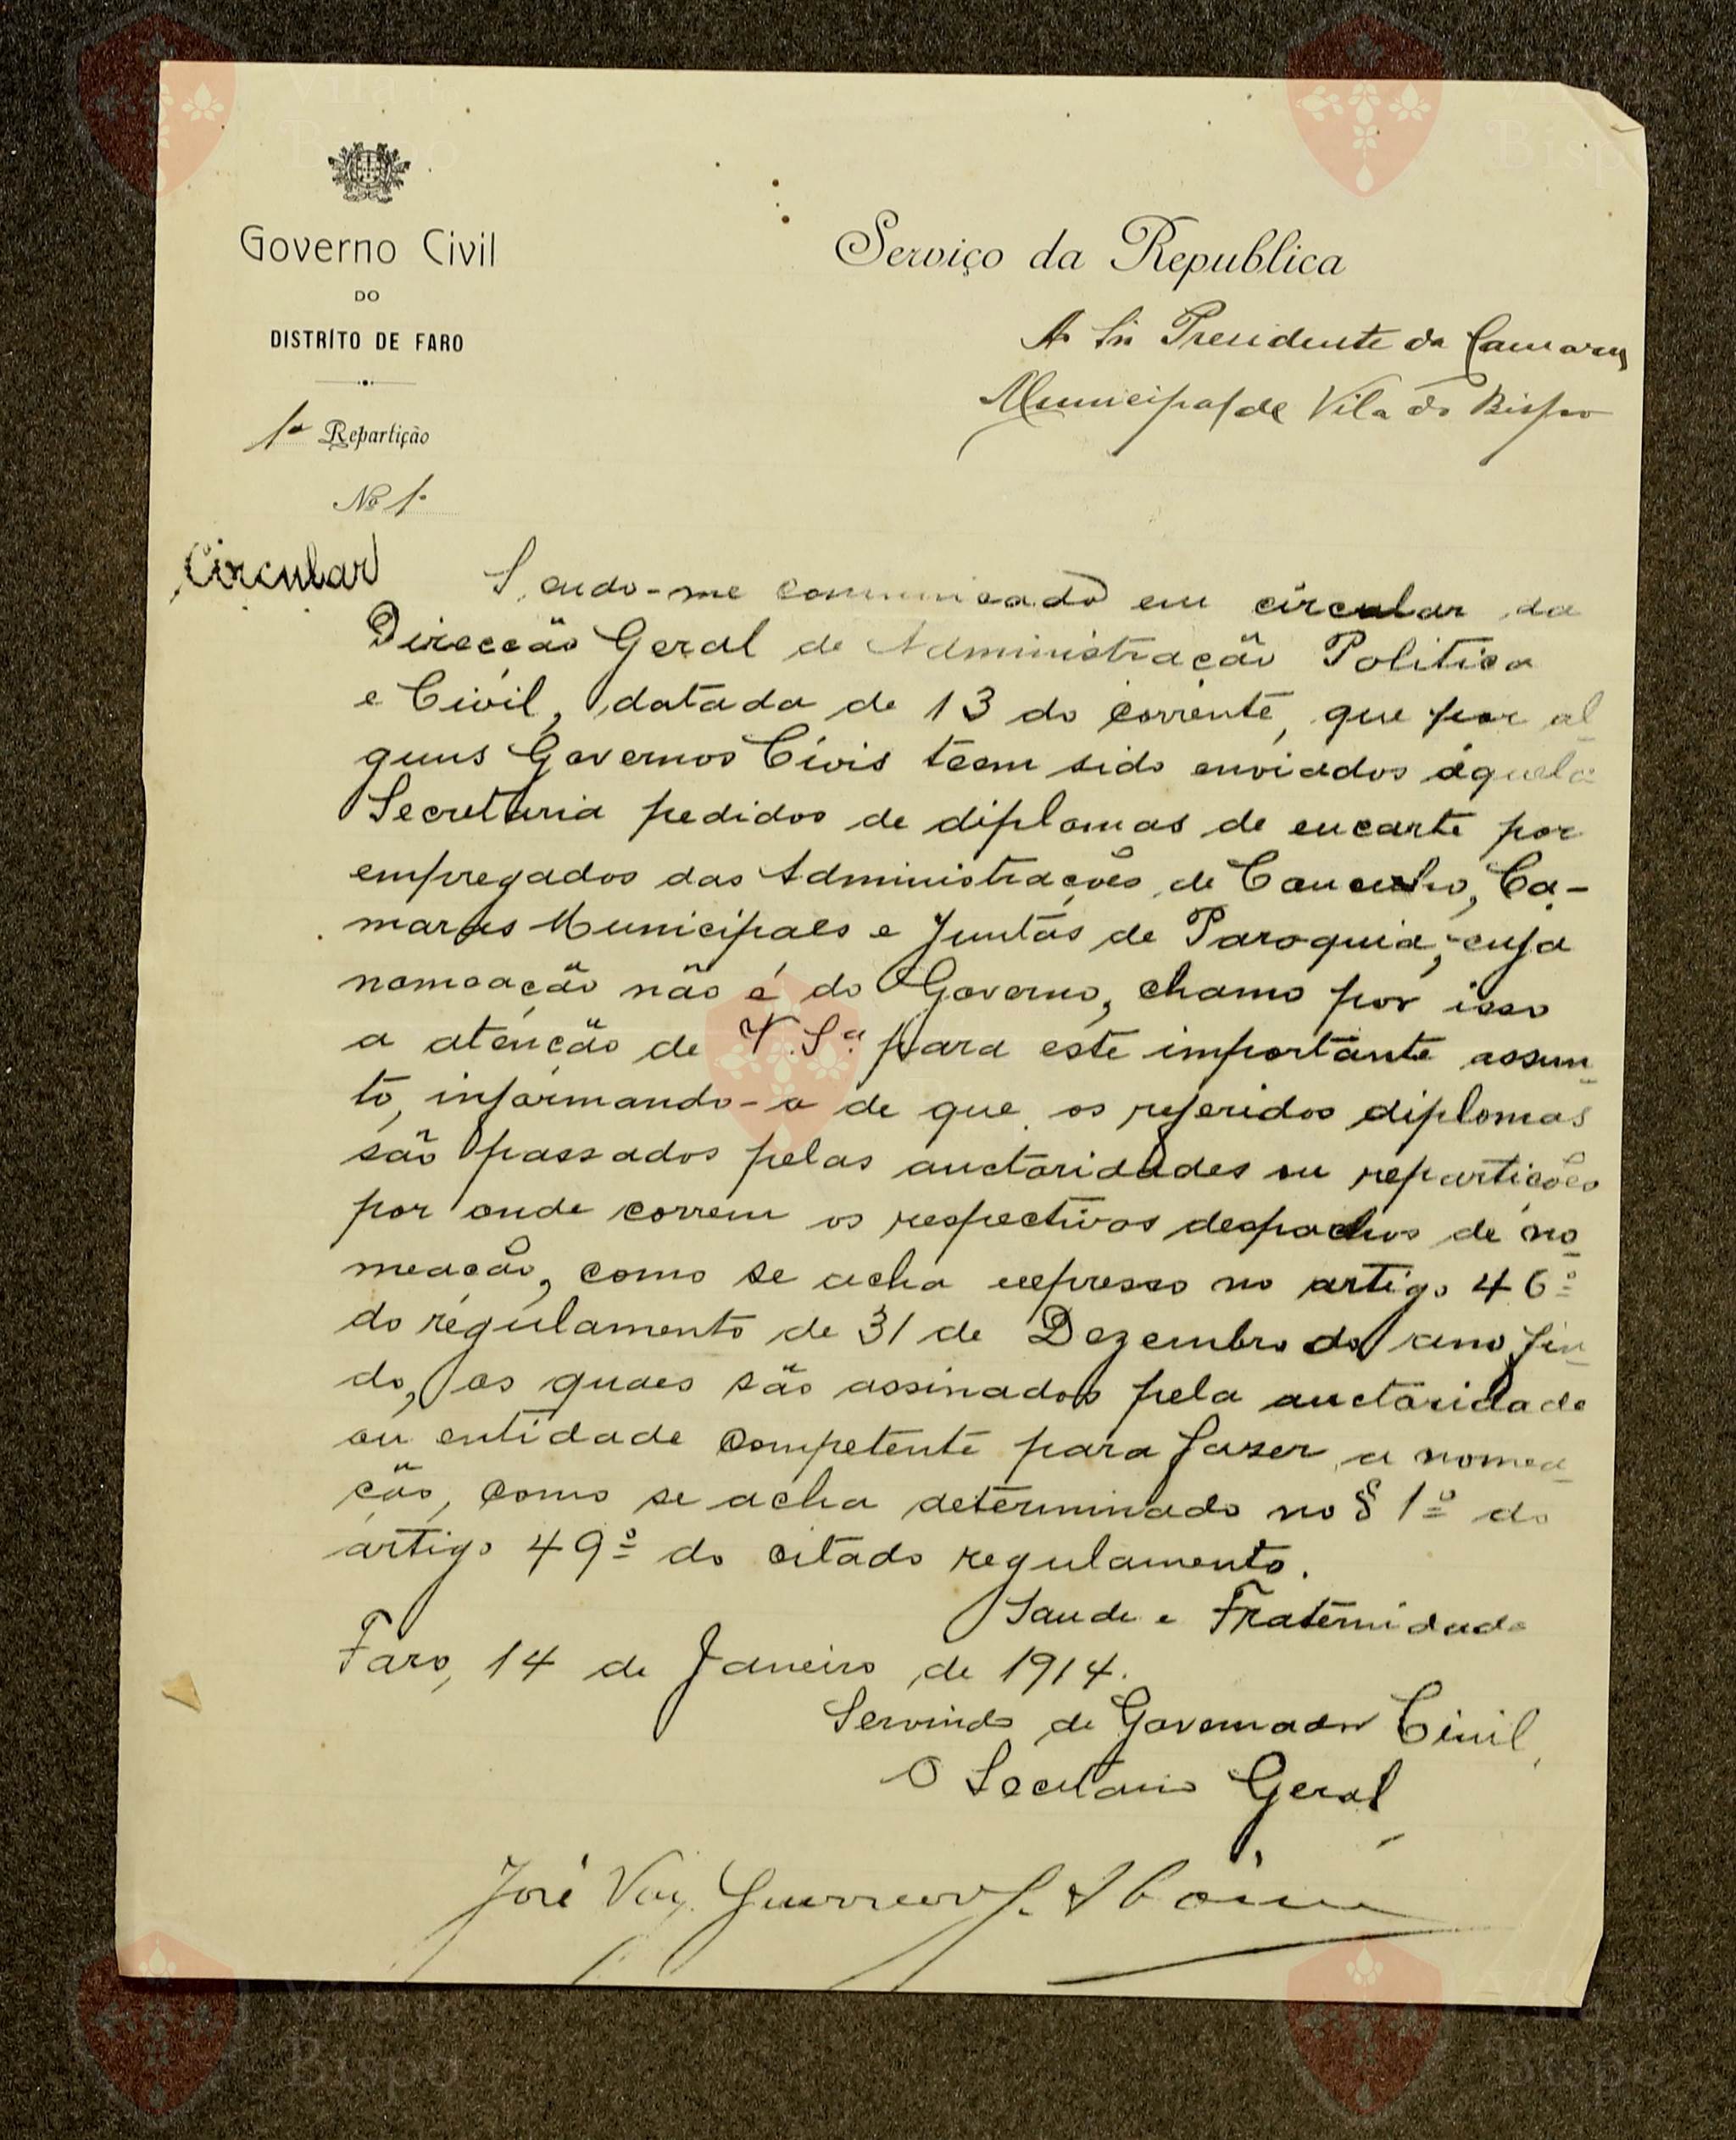 Governo Civil
DO
DISTRÍTO DE FARO
1ª Repartição
Nº 1
Serviço da Republica
Ao Snr Presidente da Camara
Municipal de Vila do Bispo
Circular
Sendo-me communicado em circular da
Direcção Geral de Administração Politica
e Civil, datada de 13 do corrente, que por al-
guns Governos Civis teem sido enviados áquela
Secretaria pedidos de diplomas de encarte por
empregados das Administrações de Concelho, Ca-
maras Municipaes e Juntas de Paroquia, cuja
nomeação não é do Governo, chamo por isso
a atenção de V. Sª para este importante assun-
to, informando-o de que os referidos diplomas
são passados pelas auctoridades ou repartições
por onde correm os respectivos despachos de no-
meação, como se acha expresso no artigo 46º
do regulamento de 31 de Dezembro do ano fin-
do, os quaes são assinados pela auctoridade
ou entidade competente para faser a nomea-
ção, como se acha determinado no § 1º do
artigo 49º do citado regulamento.
Saude e Fraternidade
Faro, 14 de Janeiro de 1914.
Servindo de Governador Civil,
O Secretario Geral
José Vaz Guerreiro
Vila do
Bispo